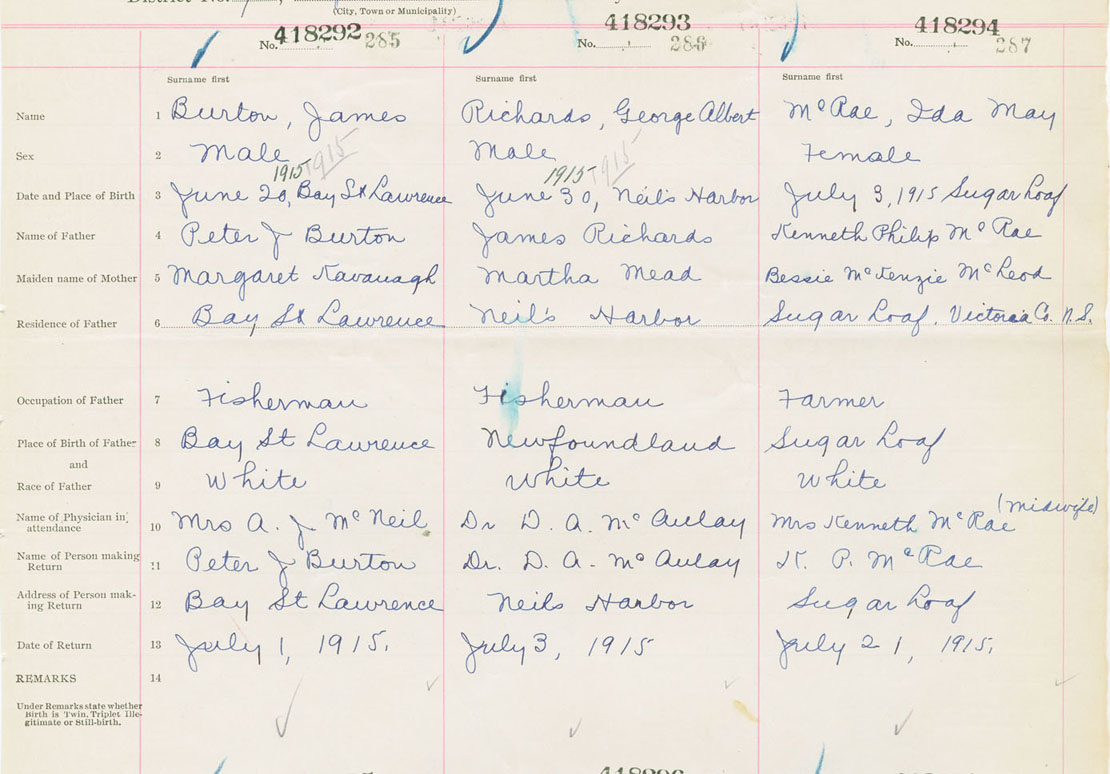 District No.
(City, Town or Municipality)
No. 418292 285
No. 418293 286
No. 418294 287
Surname first Surname first Surname first
Name 1 Burton, James Richards, George Albert McRae, Ida May
Sex 2 Male Male Female
1915 1915 1915 1915
Date and Place of Birth 3 June 20, Bay St Lawrence June 30, Neil's Harbor July 3, 1915 Sugar Loaf
Name of Father 4 Peter J Burton James Richards Kenneth Philip McRae
Maiden name of Mother 5 Margaret Kavanagh Martha Mead Bessie McKenzie McLeod
Residence of Father 6 Bay St Lawrence Neil's Harbor Sugar Loaf, Victoria Co. N.S.
Occupation of Father 7 Fisherman Fisherman Farmer
Place of Birth of Father 8 Bay St Lawrence Newfoundland Sugar Loaf
and
Race of Father 9 White White White
(midwife)
Name of Physician in attendance 10 Mrs A. J McNeil Dr D. A. McAulay Mrs Kenneth McRae
Name of Person making Return 11 Peter J Burton Dr. D. A. McAulay K. P. McRae
Address of Person mak-
ing Return 12 Bay St Lawrence Neils Harbor Sugar Loaf
Date of Return 13 July 1, 1915. July 3, 1915 July 21, 1915.
REMARKS 14
Under Remarks state whether
Birth is Twin, Triplet Ille-
gitimate or Still-birth.